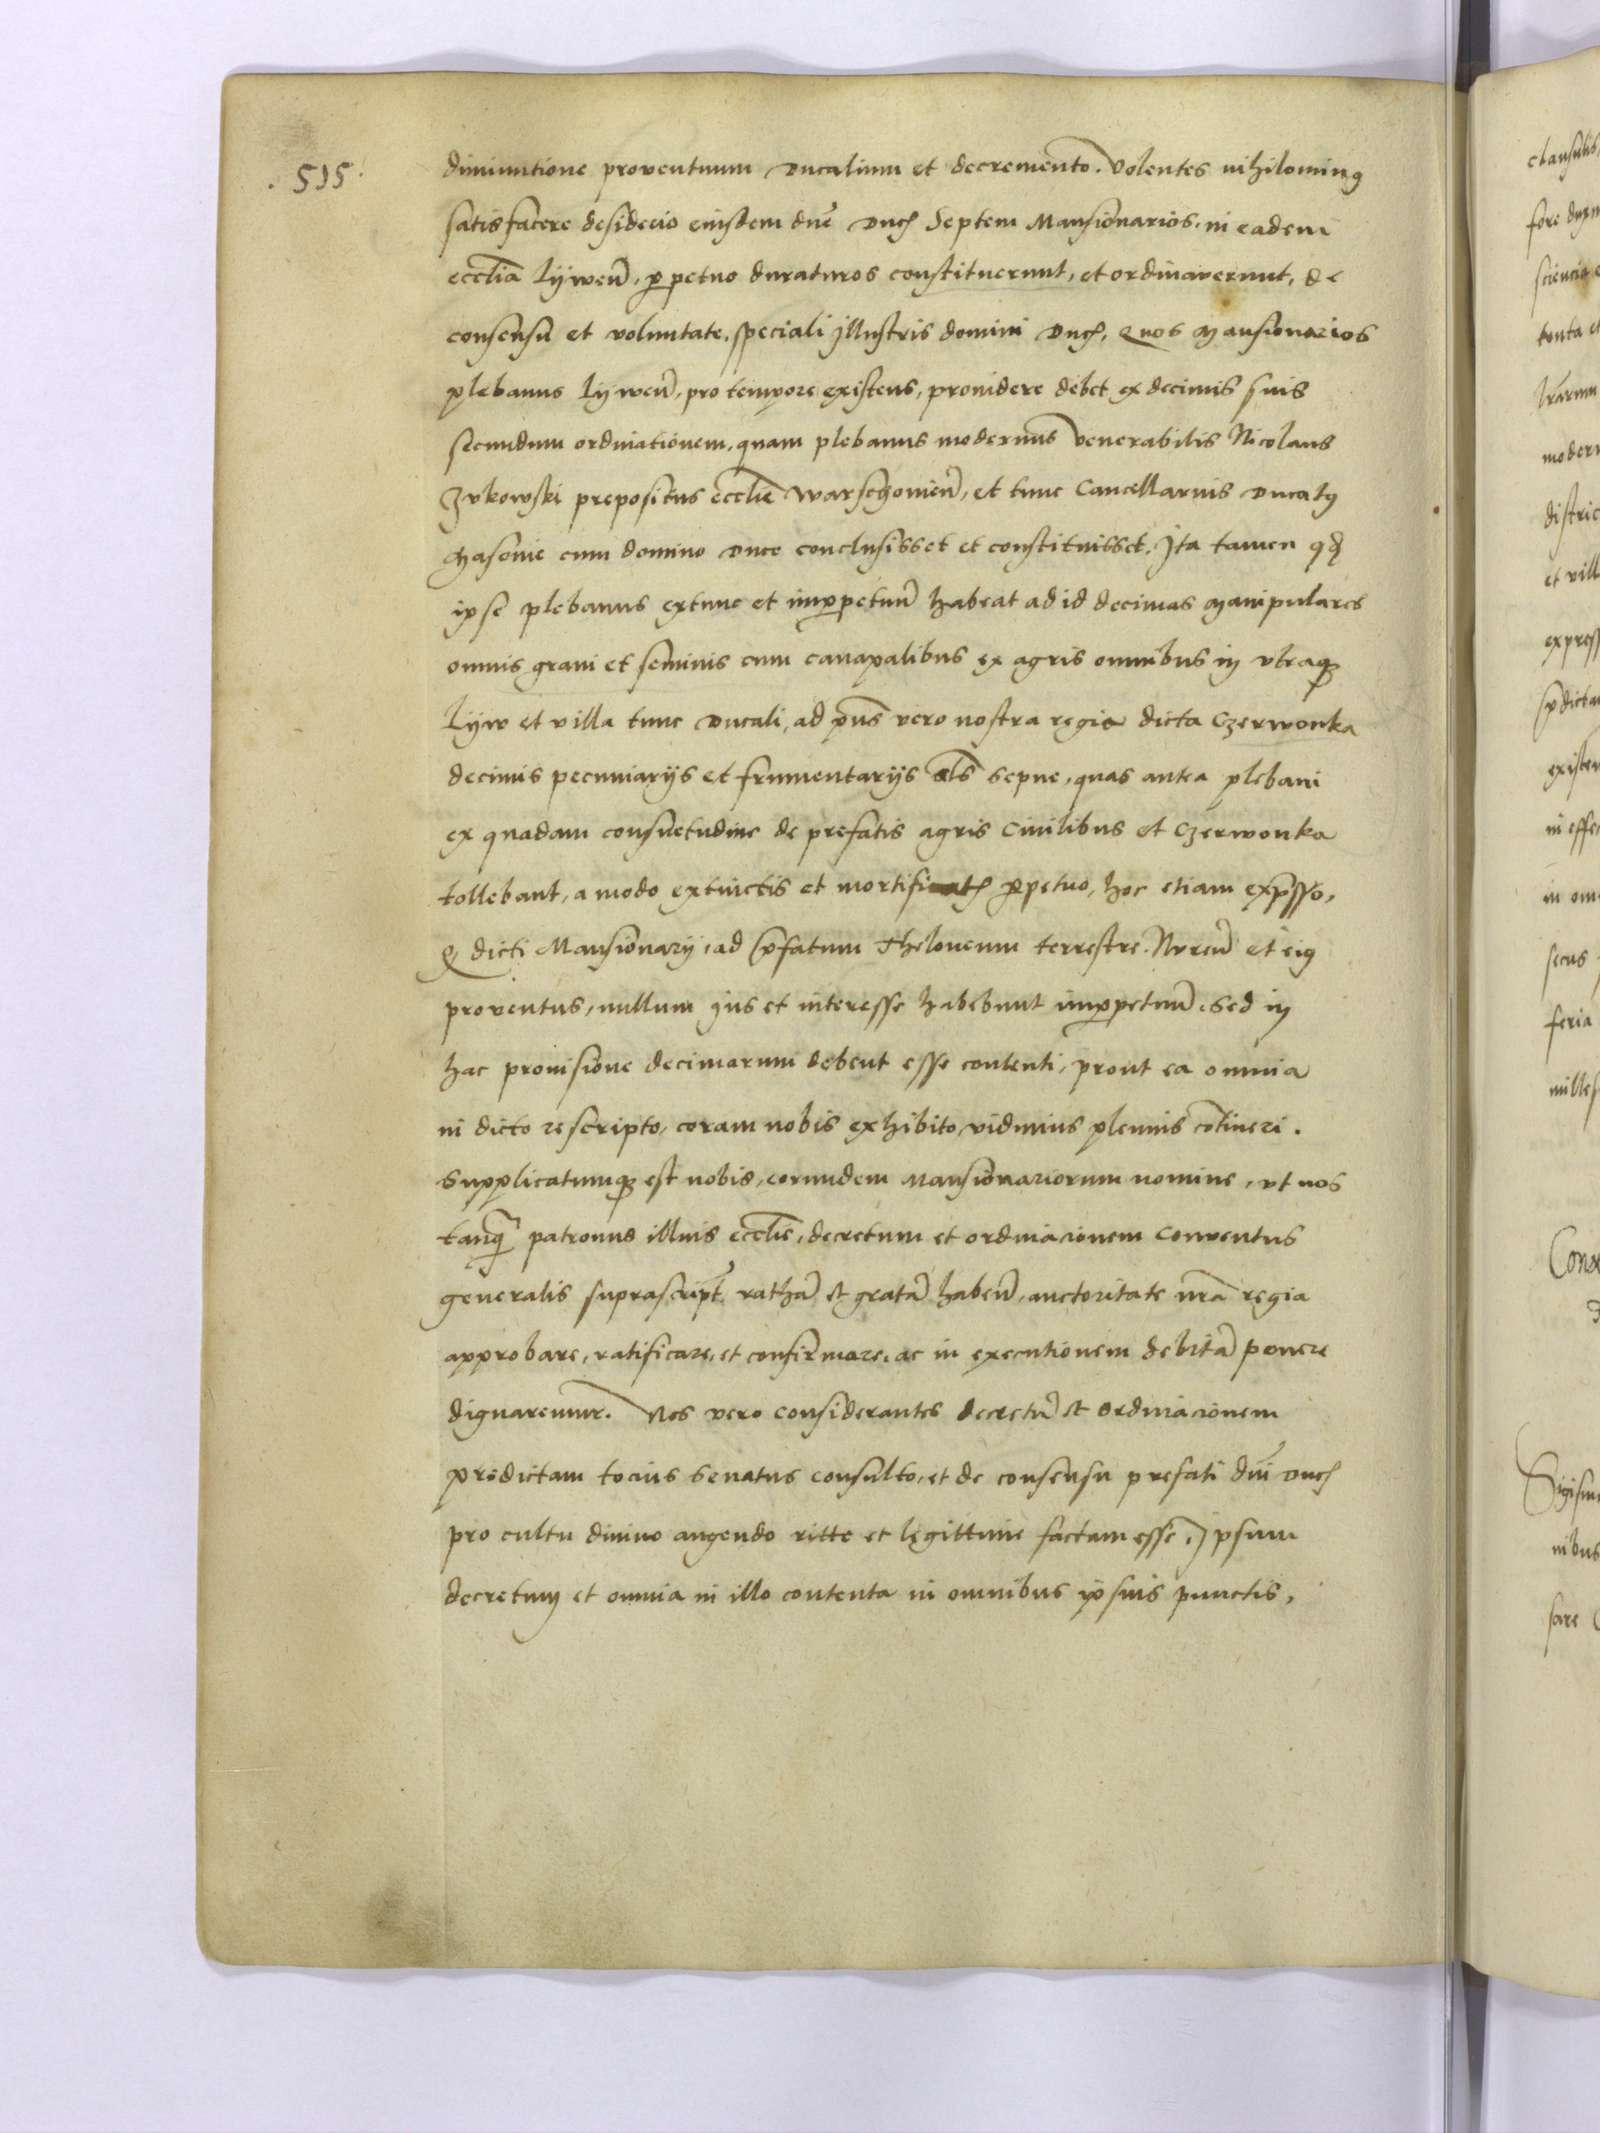 . 515 .
diminutione proventuum Ducalium et decremento. Volentes nihilominꝯ
satisfacere desiderio eiusdem dnē Ducꝭ Septem Mansionarios, in eadem
ecclīa Lijweñ, ꝑpetuo duraturos constituerunt, et ordinaverunt, de
consensu et voluntate, speciali jllustris domini Ducꝭ, Quos Mansionarios
plebanus Lijweñ, pro tempore existens, providere debet ex decimis suis
secundum ordinationem, quam plebanus modernus venerabilis Nicolaus
Zukowski prepositus ecclīe Warschovieñ, et tunc Cancellarius Ducatꝯ
Masovie cum domino Duce conclusisset et constituisset, Ita tamen ꝙ
ipse plebanus extunc et imꝑpetuū habeat ad id decimas manipulares
omnis grani et seminis cum canapalibus ex agris omnibus in vtraqꝫ
Lijw et villa tunc Ducali, ad p̄ns vero nostra regia dicta Czerwonka
decimis pecuniarijs et frumentarijs āls sepne, quas antea plebani
ex quadam consuetudine de prefatis agris Civilibus et Czerwonka
tollebant, a modo extinctis et mortificatꝭ ꝑpetuo, hoc etiam exp̄sso,
ꝙ dicti Mansionarij, ad p̄fatum Theloneum terrestre Nureñ et eiꝯ
proventus, nullum jus et interesse habebunt imꝑpetuū, sed in
hac provisione decimarum debent esse contenti, prout ea omnia
in dicto rescripto, coram nobis exhibito, vidimus plenius cōtineri.
Supplicatumqꝫ est nobis, eorundem Mansionariorum nomine, vt nos
tanqꝫ̄ patronus illius ecclīe, decretum et ordinacionem Conventus
generalis suprascript̃ rathā et gratā habeñ, auctoritate nr̄a regia
approbare, ratificare, et confirmare, ac in executionem debitā ponere
dignaremur. Nos vero considerantes decretū et ordinacionem
predictam tocius senatus consulto, et de consensu prefati dn̄i Ducꝭ
pro cultu divino augendo ritte et legittime factam esse, Ipsum
decretum et omnia in illo contenta in omnibus ipsius punctis,